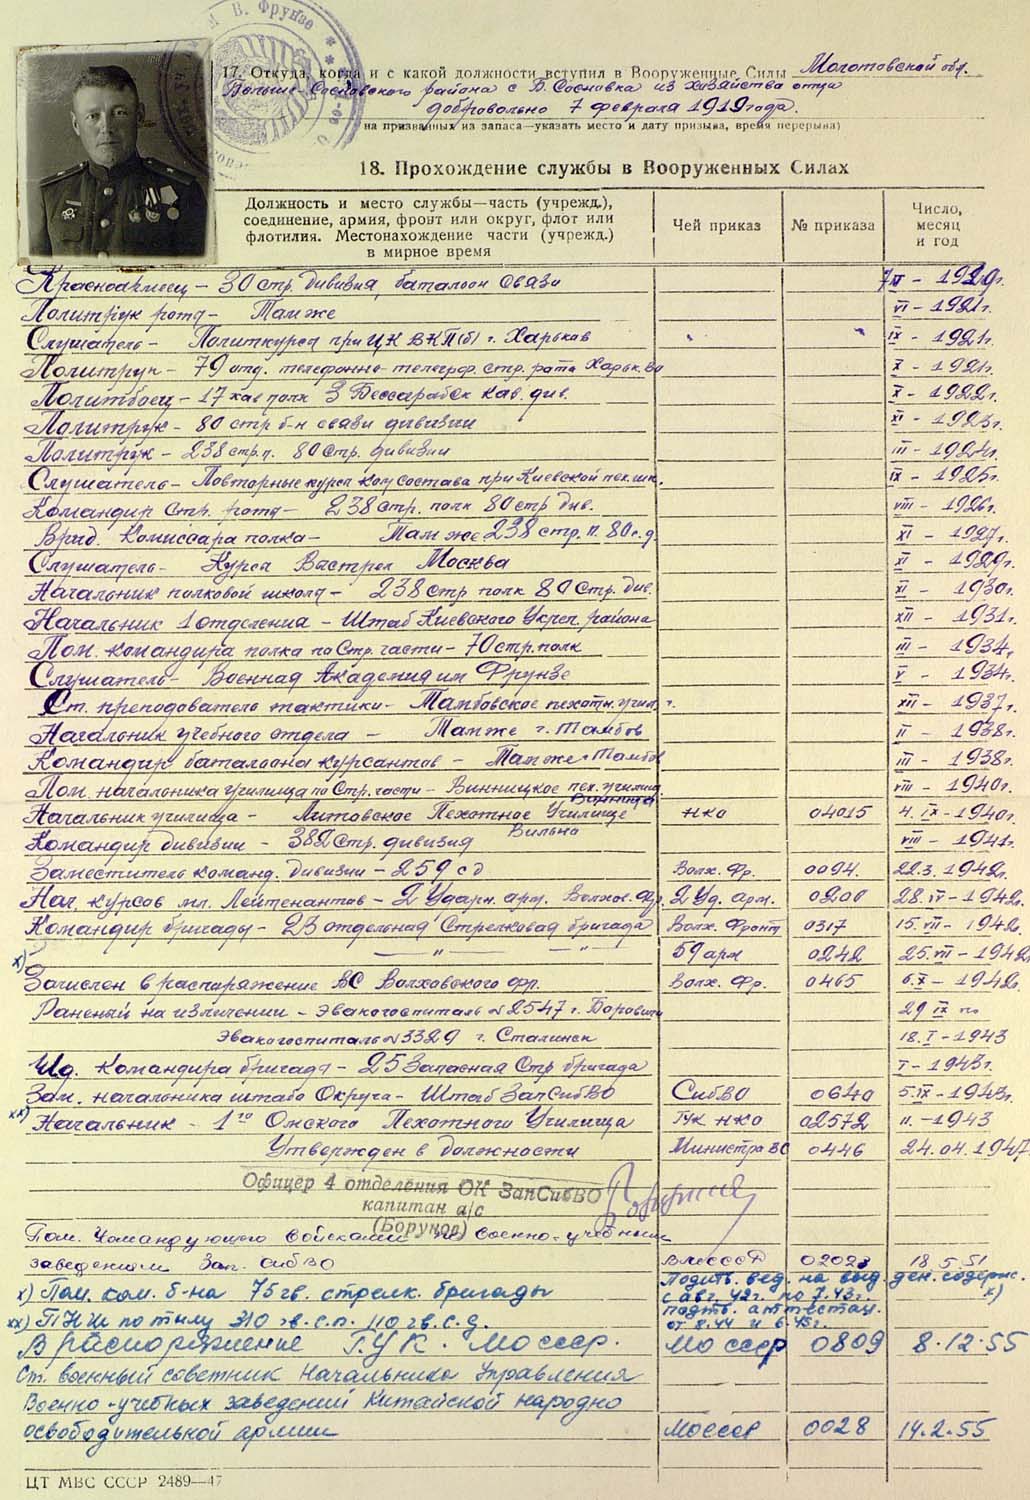 М В. Фрунзе
17. Откуда, когда и с какой должности вступил в Вооруженные Силы Молотовской обл.
Больше-Сосновского района с Б. Сосновка из хозяйства отца
добровольно 7 февраля 1919 года.
на призванных из запаса—указать место и дату призыва, время перерыва)
18. Прохождение службы в Вооруженных Силах
Должность и место службы—часть (учрежд.),
соединение, армия, фронт или округ, флот или
флотилия. Местонахождение части (учрежд.)
в мирное время
Чей приказ
№ приказа
Число,
месяц
и год
Красноармеец – 30 стр. дивизия, баталион связи
Политрук роты – Там же VI – 1921г.
Слушатель – Политкурсы при ЦК ВКП(б) г. Харьков IX – 1921г.
Политрук – 79 отд. телефонно-телегр. стр. рота X – 1921г.
Политбоец – 17 кав полк 3 Бессарабск кав. див. X – 1922г.
Политрук – 80 стр б-н связи дивизии XI – 1923г.
Политрук – 238 стр. п. 80 стр. дивизии III – 1924г.
Слушатель – Повторные курсы комсостава при Киевской пех. шк. IX – 1925г.
Командир стр. роты – 238 стр. полк 80 стр див. VIII – 1926г.
Врид. Комиссара полка – Там же 238 стр. п. 80 с. д XI – 1927г.
Слушатель – Курсы Выстрел Москва XI – 1929г.
Начальник полковой школы – 238 стр полк 80 Стр. див. XI – 1930г.
Начальник 1 отделения – Штаб Киевского Укреп. района XII – 1931г.
Пом. командира полка по Стр. части – 70 стр. полк III – 1934г.
Слушатель – Военная Академия им Фрунзе V – 1934г.
Ст. преподаватель тактики – Тамбовское пехотн. учил. XII – 1937г.
Начальник учебного отдела – Там же г. Тамбов II – 1938г.
Командир баталиона курсантов – Там же г. Тамбов III – 1938г.
Пом. начальника училища по Стр. части – Винницкое пех. училищ VIII – 1940г.
Винница
Начальник училища – Литовское Пехотное Училище НКО 04015 4. IX – 1940г.
Вильно
Командир дивизии – 382 Стр. дивизия VIII – 1941г.
Заместитель команд. дивизии – 259 сд Волх. Фр. 0094. 22.3. 1942г.
Нач. курсов мл. Лейтенантов – 2 Ударн. арм. Волхов. Фр. 2 Уд. арм. 0200 28. IV – 1942г.
Командир бригады – 23 отдельная Стрелковая бригада Волх. Фронт 0317 15. VII – 1942г.
х) — " — — " — 59 арм 0242 25. VII – 1942
Зачислен в распоряжение ВС Волховского фр. Волх. Фр. 0465 6. X – 1942г.
Раненый на излечении – эвакогоспиталь № 2547 г. Боровичи 29 IX по
эвакогоспиталь № 3329 г. Сталинск 18. I – 1943
Ид. командира бригады – 25 Запасная Стр бригада I – 1943г.
Зам. начальника штаба Округа – Штаб ЗапСибВО СибВО 0640 5. IX – 1943г.
хх) Начальник – 1го Омского Пехотного Училища ГУК НКО 02572 11. – 1943
Утвержден в должности Министра ВС 0446 24. 04. 1947
Офицер 4 отделения ОК ЗапСибВО
капитан а/с
(Борунов)
Пом. Командующего войсками по военно-учебным
заведениям Зап. сибВО 0202 18 5 51
х) Пом. ком. б-на 75 гв. стрелк. бригады
подтв. вед. на выд. ден. содерж.
с авг. 42г. по 7.43г. х)
хх) ПНШ по тылу 310 гв. с. п. 110 гв. с. д.
подтв. аттестац.
от 8.44 и 6.45г.
В распоряжение ГУК. МО ссср. МО ссср 0809 8.12.55
Ст. военный советник Начальника Управления
Военно-учебных заведений Китайской народно
освободительной армии МОссср 0028 14.2.55
ЦТ МВС СССР 2489—47